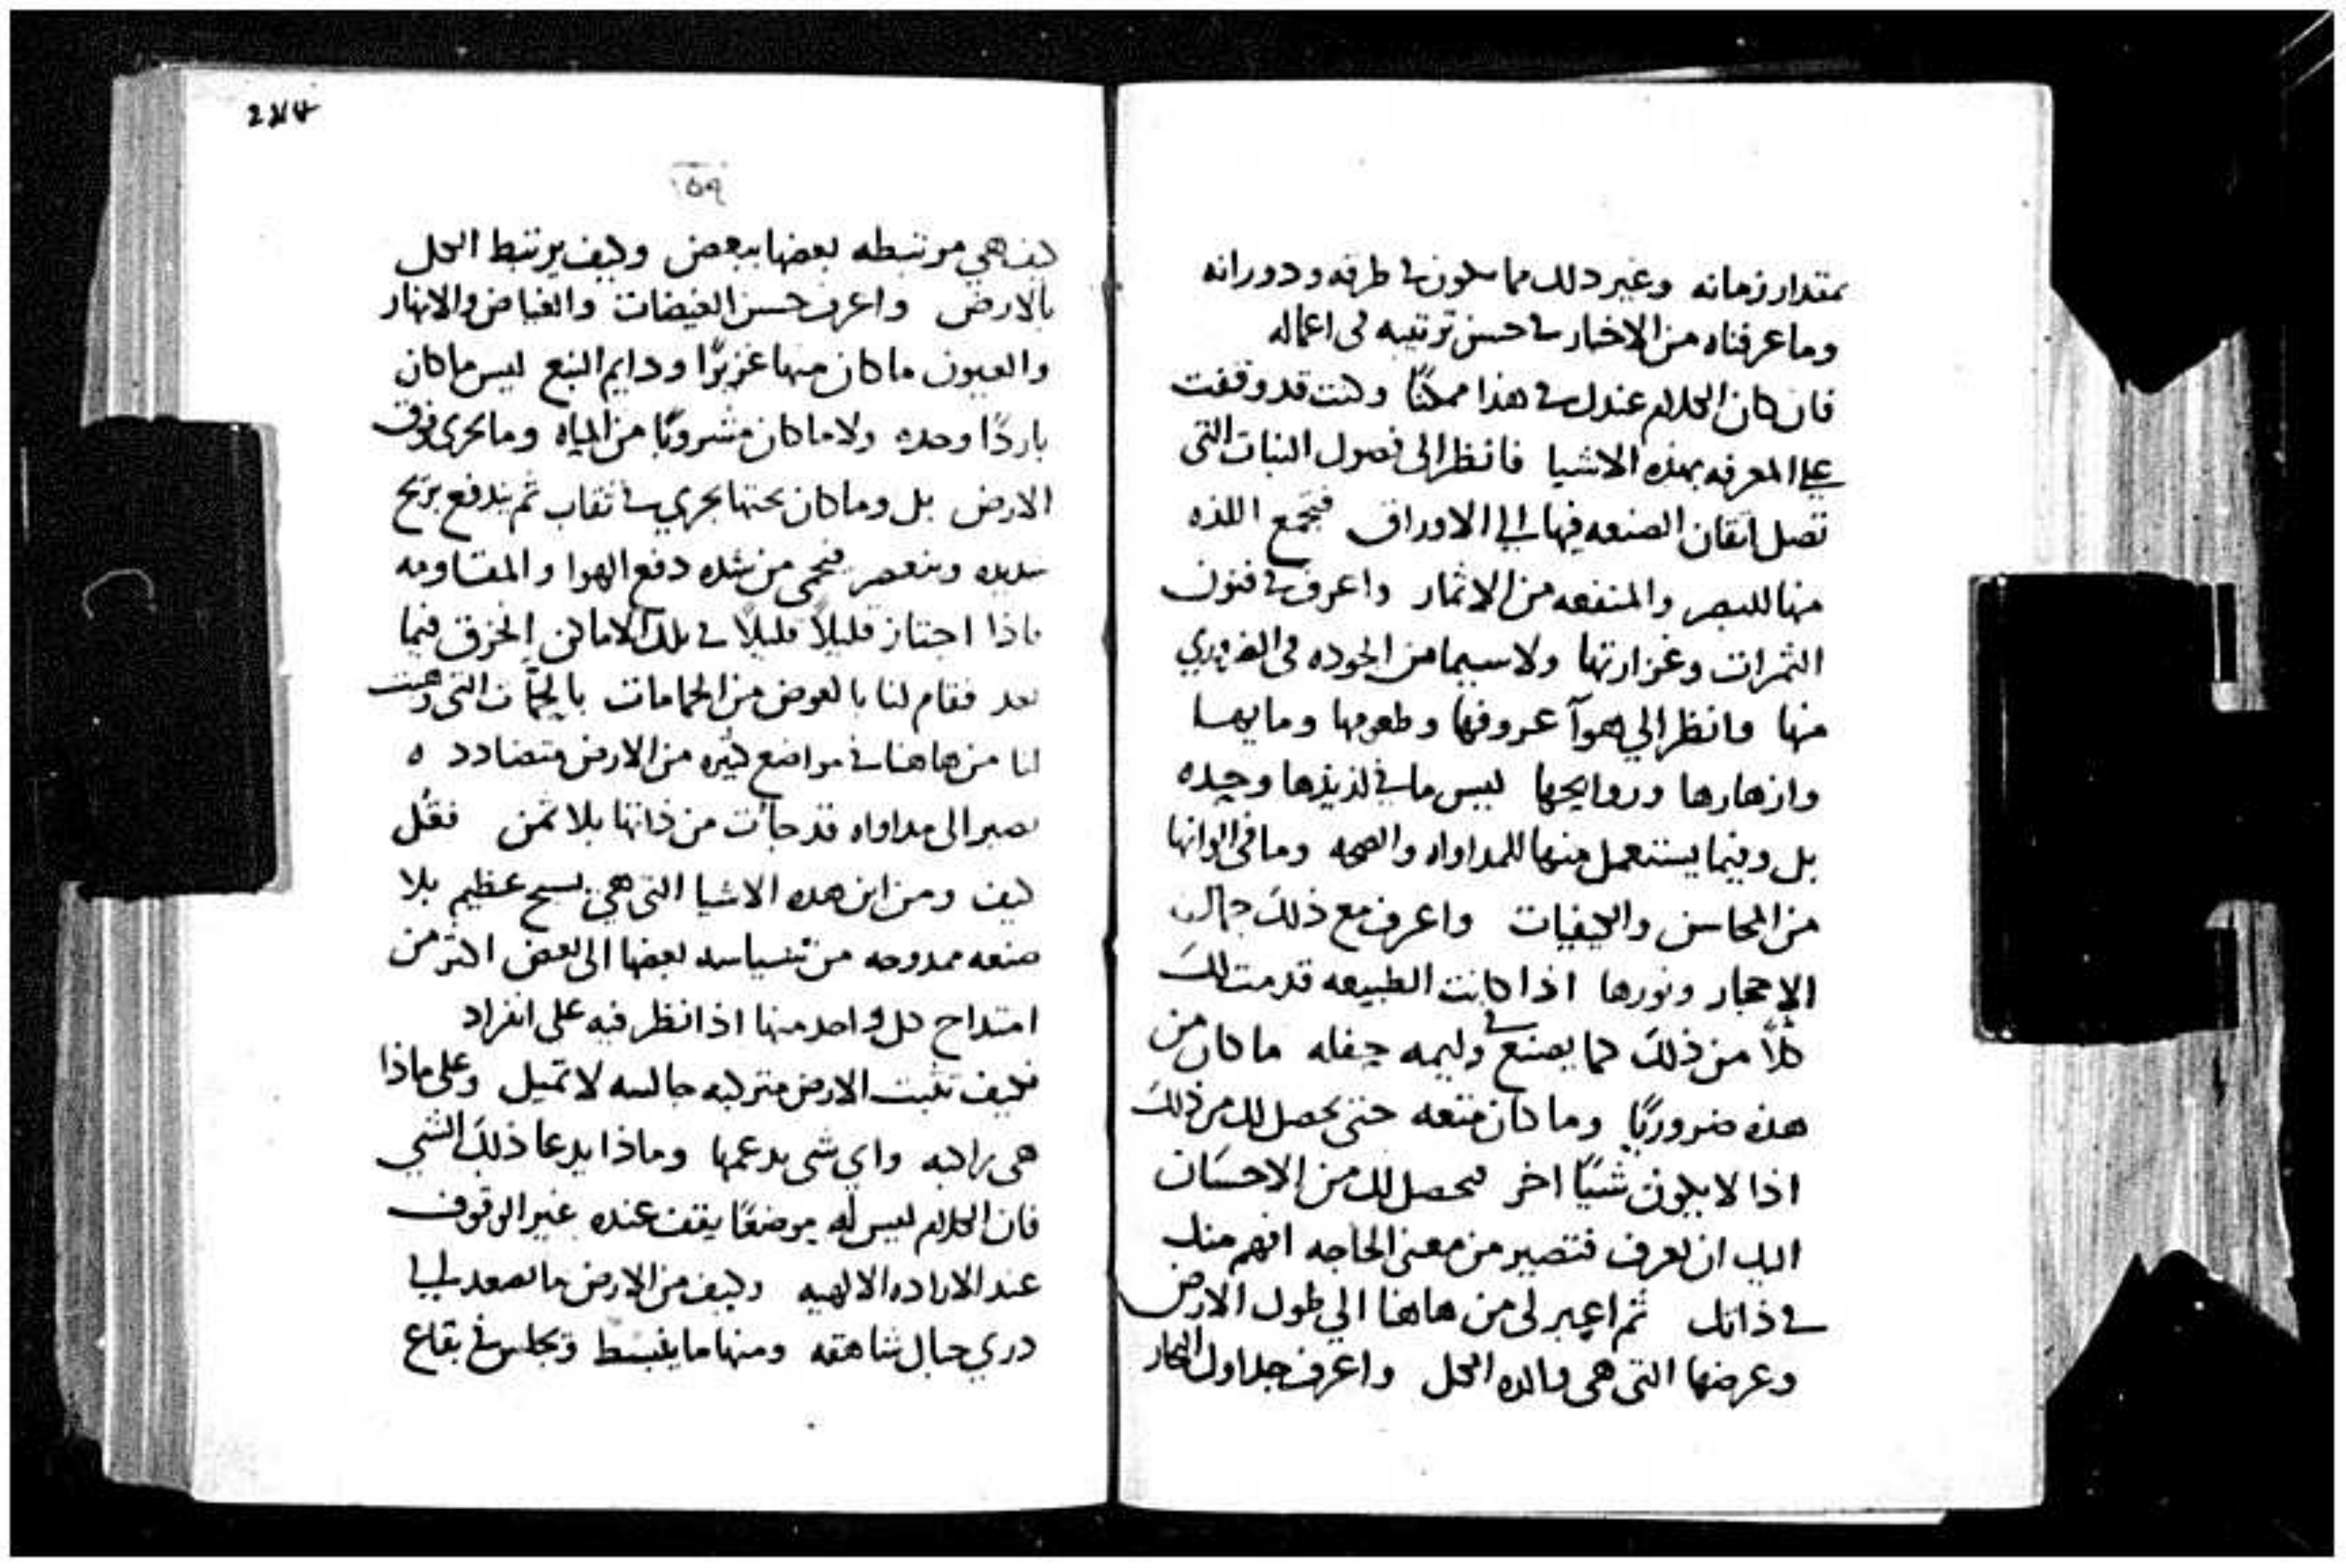 بمقدار زمانه وغير دلك مما سلون في طرفه ودورانه
وما عرفناه من الاخبار في حسن ترتيبه في اعماله
فان كان الكلام عندك في هذا ممكنًا وكنت قد وقفت
علي المعرفه بهذه الاشيا فانظر الى فصول النبات التي
تصل اتقان الصنعه فيها الي الاوراق فيجمع اللذه
منها للبصر والمنفعه من الاثمار واعرف في فنون
الثمرات وغزارتها ولا سيما من الجوده في الضروري
منها وانظر الي عروقها وطعومها
وازهارها وروايحها ليس ما في لذيذها وجيده
بل وفيما يستعمل منها للمداواه والصحه وما في الوانها
من المحاسن والكيفيات واعرف مع ذلك جمال
الاحجار ونورها اذا كانت الطبيعه قدمت لك
كلاً من ذلك كما يصنع في وليمه حفله ما كان من
هذه ضروريًا وما كان متعه حتى يحصل لك من ذلك
اذا لا يكون شيًا اخر فيحصل لك من الاحسان
اليك ان تعرف فتصير من معنى الحاجه افهم منك
في ذاتك ثم اعبر لى من هاهنا الي طول الارض
وعرضها التى هى والده الكل واعرف جداول البحار
274
١٥٩
كيف هي مرتبطه بعضها ببعض وكيف يرتبط الكل
بالارض واعرف حسن الغيضات والغياض والانهار
والعيون ما كان منها غزيرًا ودايم النبع ليس ما كان
باردًا وحده ولا ما كان مشروبًا من المياه وما يجرى فوق
الارض بل وما كان تحتها يجري في ثقاب ثم يندفع بريح
شديده وينعصر فيحمى من شده دفع الهوا والمقاومه
فاذا اجتاز قليلاً قليلاً في تلك الاماكن انخرق فيما
بعد فقام لنا بالعوض من الحمامات بالحمّات التى وهبت
لنا من هاهنا في مواضع كثيره من الارض متضادده
تصير الى مداواه قد جأت من ذاتها بلا ثمن فقُل
كيف ومن اين هذه الاشيا التى هي نسيج عظيم بلا
صنعه ممدوحه من بعضها الى بعض اكثر من
امتداح كل واحد منها اذا نظر فيه على انفراد
فكيف تثبت الارض متركبه جالسه لا تميل وعلى ماذا
هى راكبه واي شى يدعمها وماذا يدعا ذلك الشي
فان الكلام ليس له موضعًا يقف عنده غير الوقوف
عند الاراده الالهيه وكيف من الارض ما يصعد الي
دري جبال شاهقه ومنها ما ينبسط ويجلس في بقاع